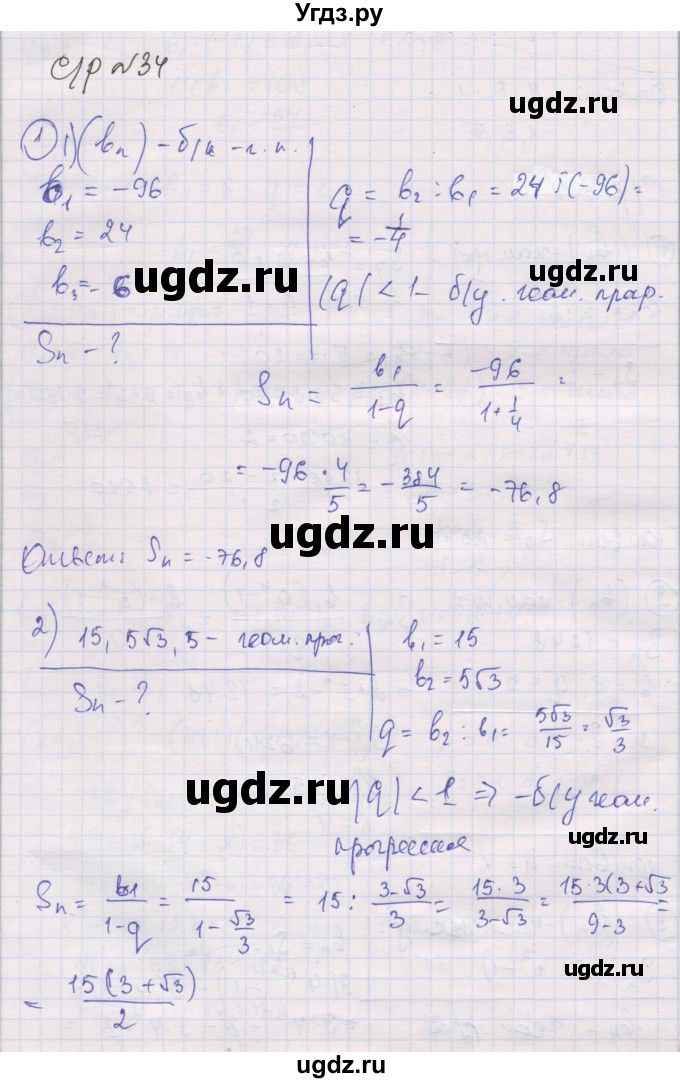 Угдз.ру
с/р №34
ugdz.ru
① 1) (bₙ) – б/к – г. п.
b₁ = –96
b₂ = 24
b₃ = –6
Sₙ – ?
q = b₂ : b₁ = 24 : (–96) =
= –1/4
|q| < 1 – б/у. геом. прог.
ugdz.ru
ugdz.ru
Sₙ = b₁/(1–q) = –96/(1+1/4) =
= –96 · 4/5 = –384/5 = –76,8
ugdz.ru
ugdz.ru
Ответ: Sₙ = –76,8
2) 15, 5√3, 5 – геом. прог.
Sₙ – ?
b₁ = 15
b₂ = 5√3
q = b₂ : b₁ = 5√3/15 = √3/3
ugdz.ru
|q| < 1 ⇒ – б/у геом.
прогрессия
ugdz.ru
Sₙ = b₁/(1–q) = 15/(1–√3/3) = 15 : (3–√3)/3 = 15·3/(3–√3) = 15·3(3+√3/(9–3) =
= 15(3+√3)/2
ugdz.ru
ugdz.ru